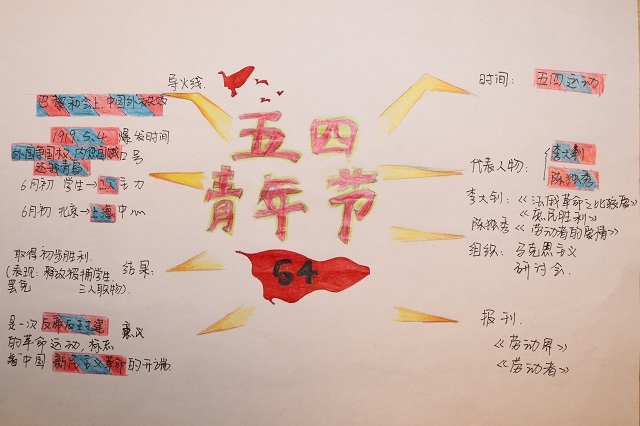 五四
青年节
54
导火线.
巴黎和会上,中国外交失败
1919.5.4 爆发时间
外争国权,内惩国贼 口号
还我青岛
6月初 学生→工人 主力
6月初 北京→上海 中心
取得初步胜利.
(表现: 释放被捕学生 结果:
罢免 三人职物).
是一次 反帝反封建 意义
的革命运动,标志
着中国 新民主主义革命 的开端.
时间: 五四运动
代表人物: 李大钊
陈独秀
李大钊:《法俄革命之比较观》
《庶民胜利》
陈独秀《劳动者的觉悟》
组织: 马克思主义
研讨会.
报刊.
《劳动界》
《劳动者》